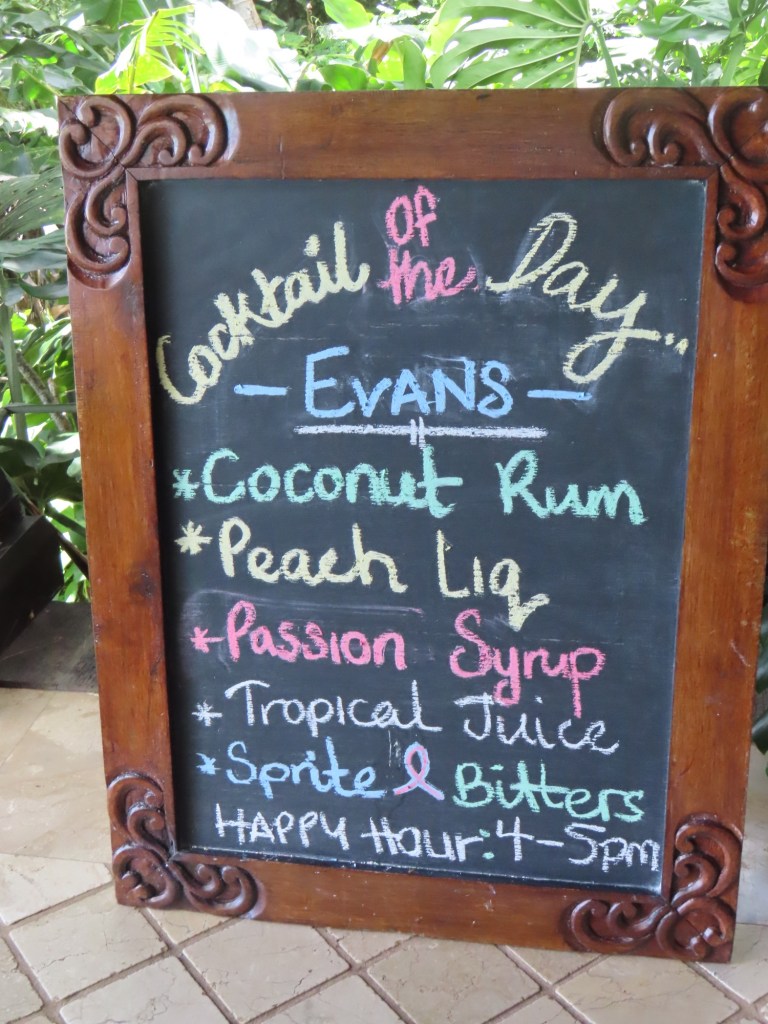 Cocktail of the Day..
- EVANS -
* Coconut Rum
* Peach Liq
* Passion Syrup
* Tropical Juice
* Sprite & Bitters
HAPPY Hour: 4-5pm